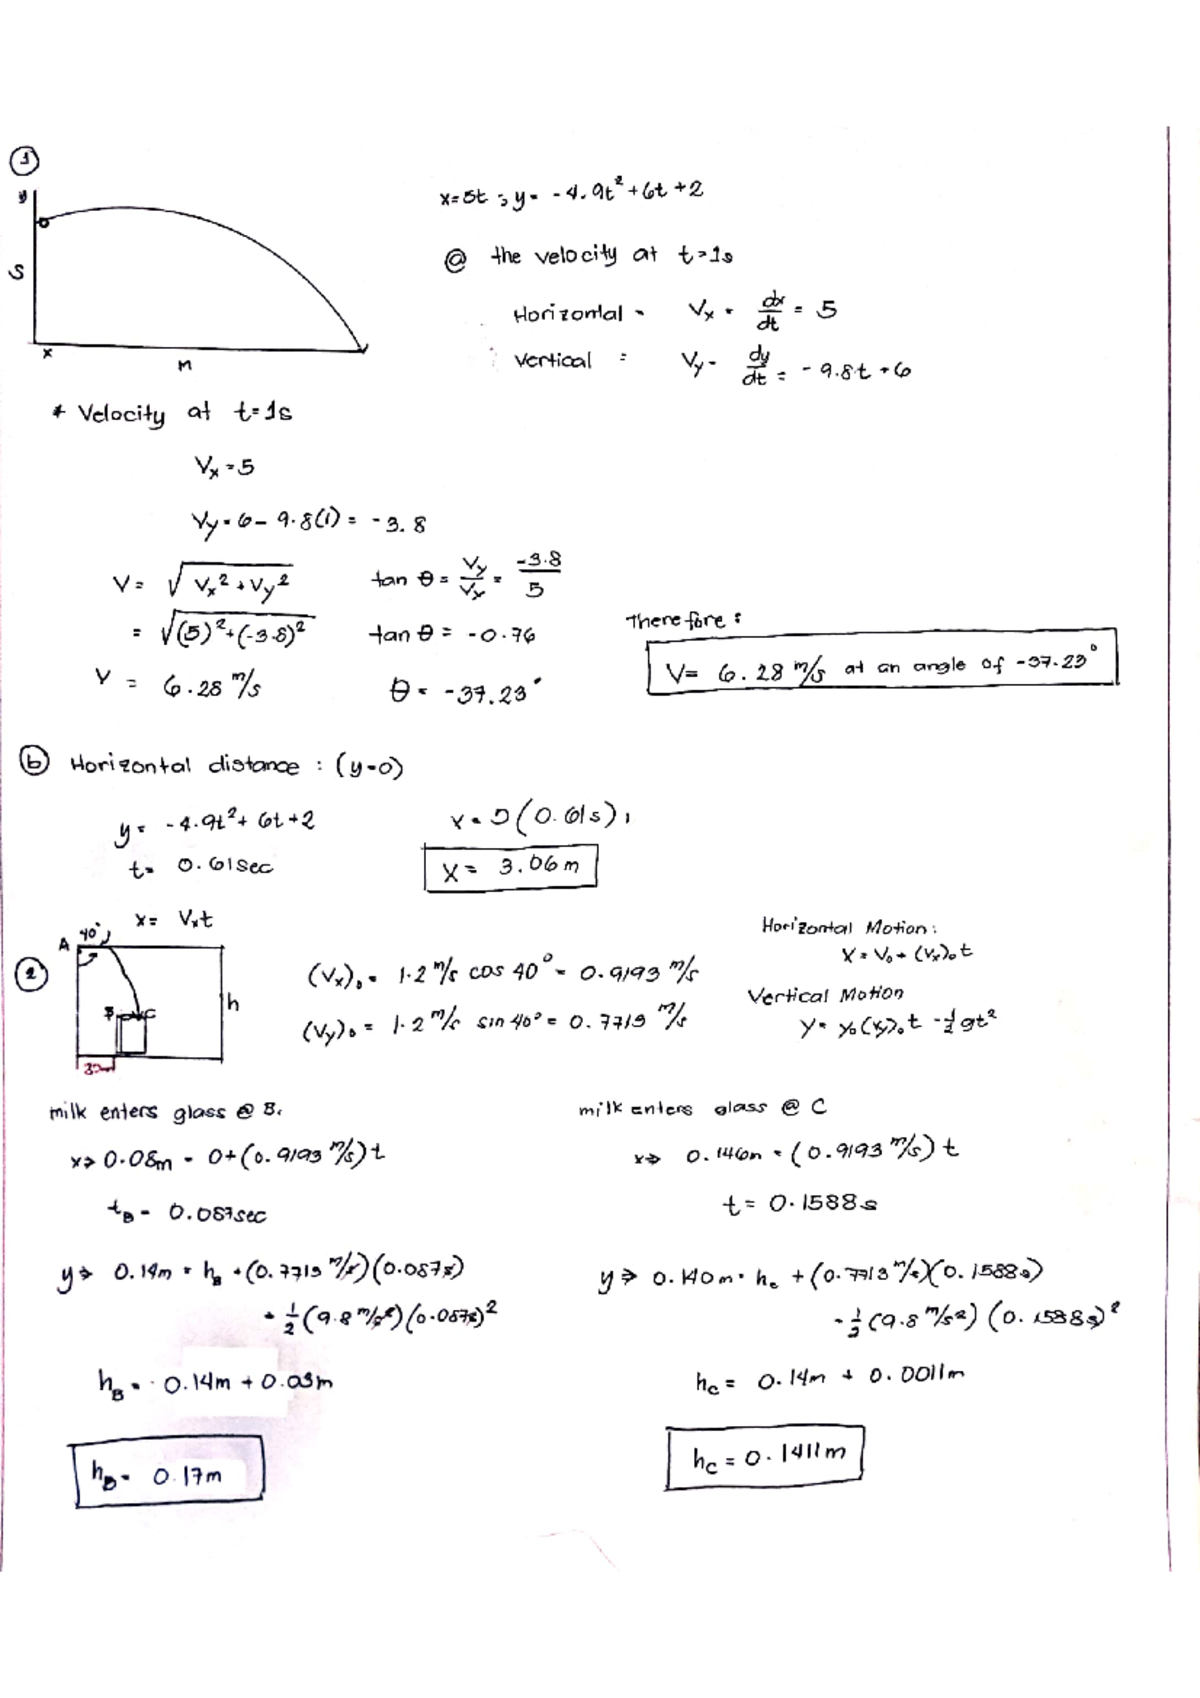 1
y
S
x
M
x=5t ; y= -4.9t²+6t+2
@ the velocity at t=1s
Horizontal = Vx = dx/dt = 5
Vertical = Vy = dy/dt = -9.8t+6
* Velocity at t=1s
Vx=5
Vy=6-9.8(1) = -3.8
V= √Vx²+Vy²
tan θ = Vy/Vx = -3.8/5
= √(5)²+(-3.8)²
tan θ = -0.76
Therefore:
V = 6.28 m/s
θ = -37.23°
V= 6.28 m/s at an angle of -37.23°
b Horizontal distance : (y=0)
y= -4.9t²+6t+2
x=5(0.61s)
t= 0.61sec
X= 3.06m
x= Vxt
2
A
40°
B
C
h
(Vx)₀ = 1.2 m/s cos 40° = 0.9193 m/s
(Vy)₀ = 1.2 m/s sin 40° = 0.7713 m/s
Horizontal Motion:
X = V₀+(Vx)₀t
Vertical Motion
Y= y₀(Vy)₀t -½gt²
milk enters glass @ B.
x→ 0.08m = 0+(0.9193 m/s)t
tB = 0.087sec
y→ 0.14m = hB +(0.7713 m/s)(0.087s)
- ½(9.8 m/s²)(0.087s)²
hB = 0.14m + 0.03m
hB = 0.17m
milk enters glass @ C
x→ 0.146m = (0.9193 m/s)t
t= 0.1588s
y→ 0.140m = hc +(0.7713 m/s)(0.1588s)
-½(9.8 m/s²)(0.1588s)²
hc = 0.14m + 0.0011m
hc = 0.1411m